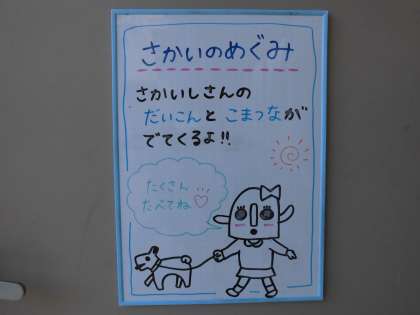 さかいのめぐみ
さかいしさんの
だいこんと こまつなが
でてくるよ!!
たくさん
たべてね